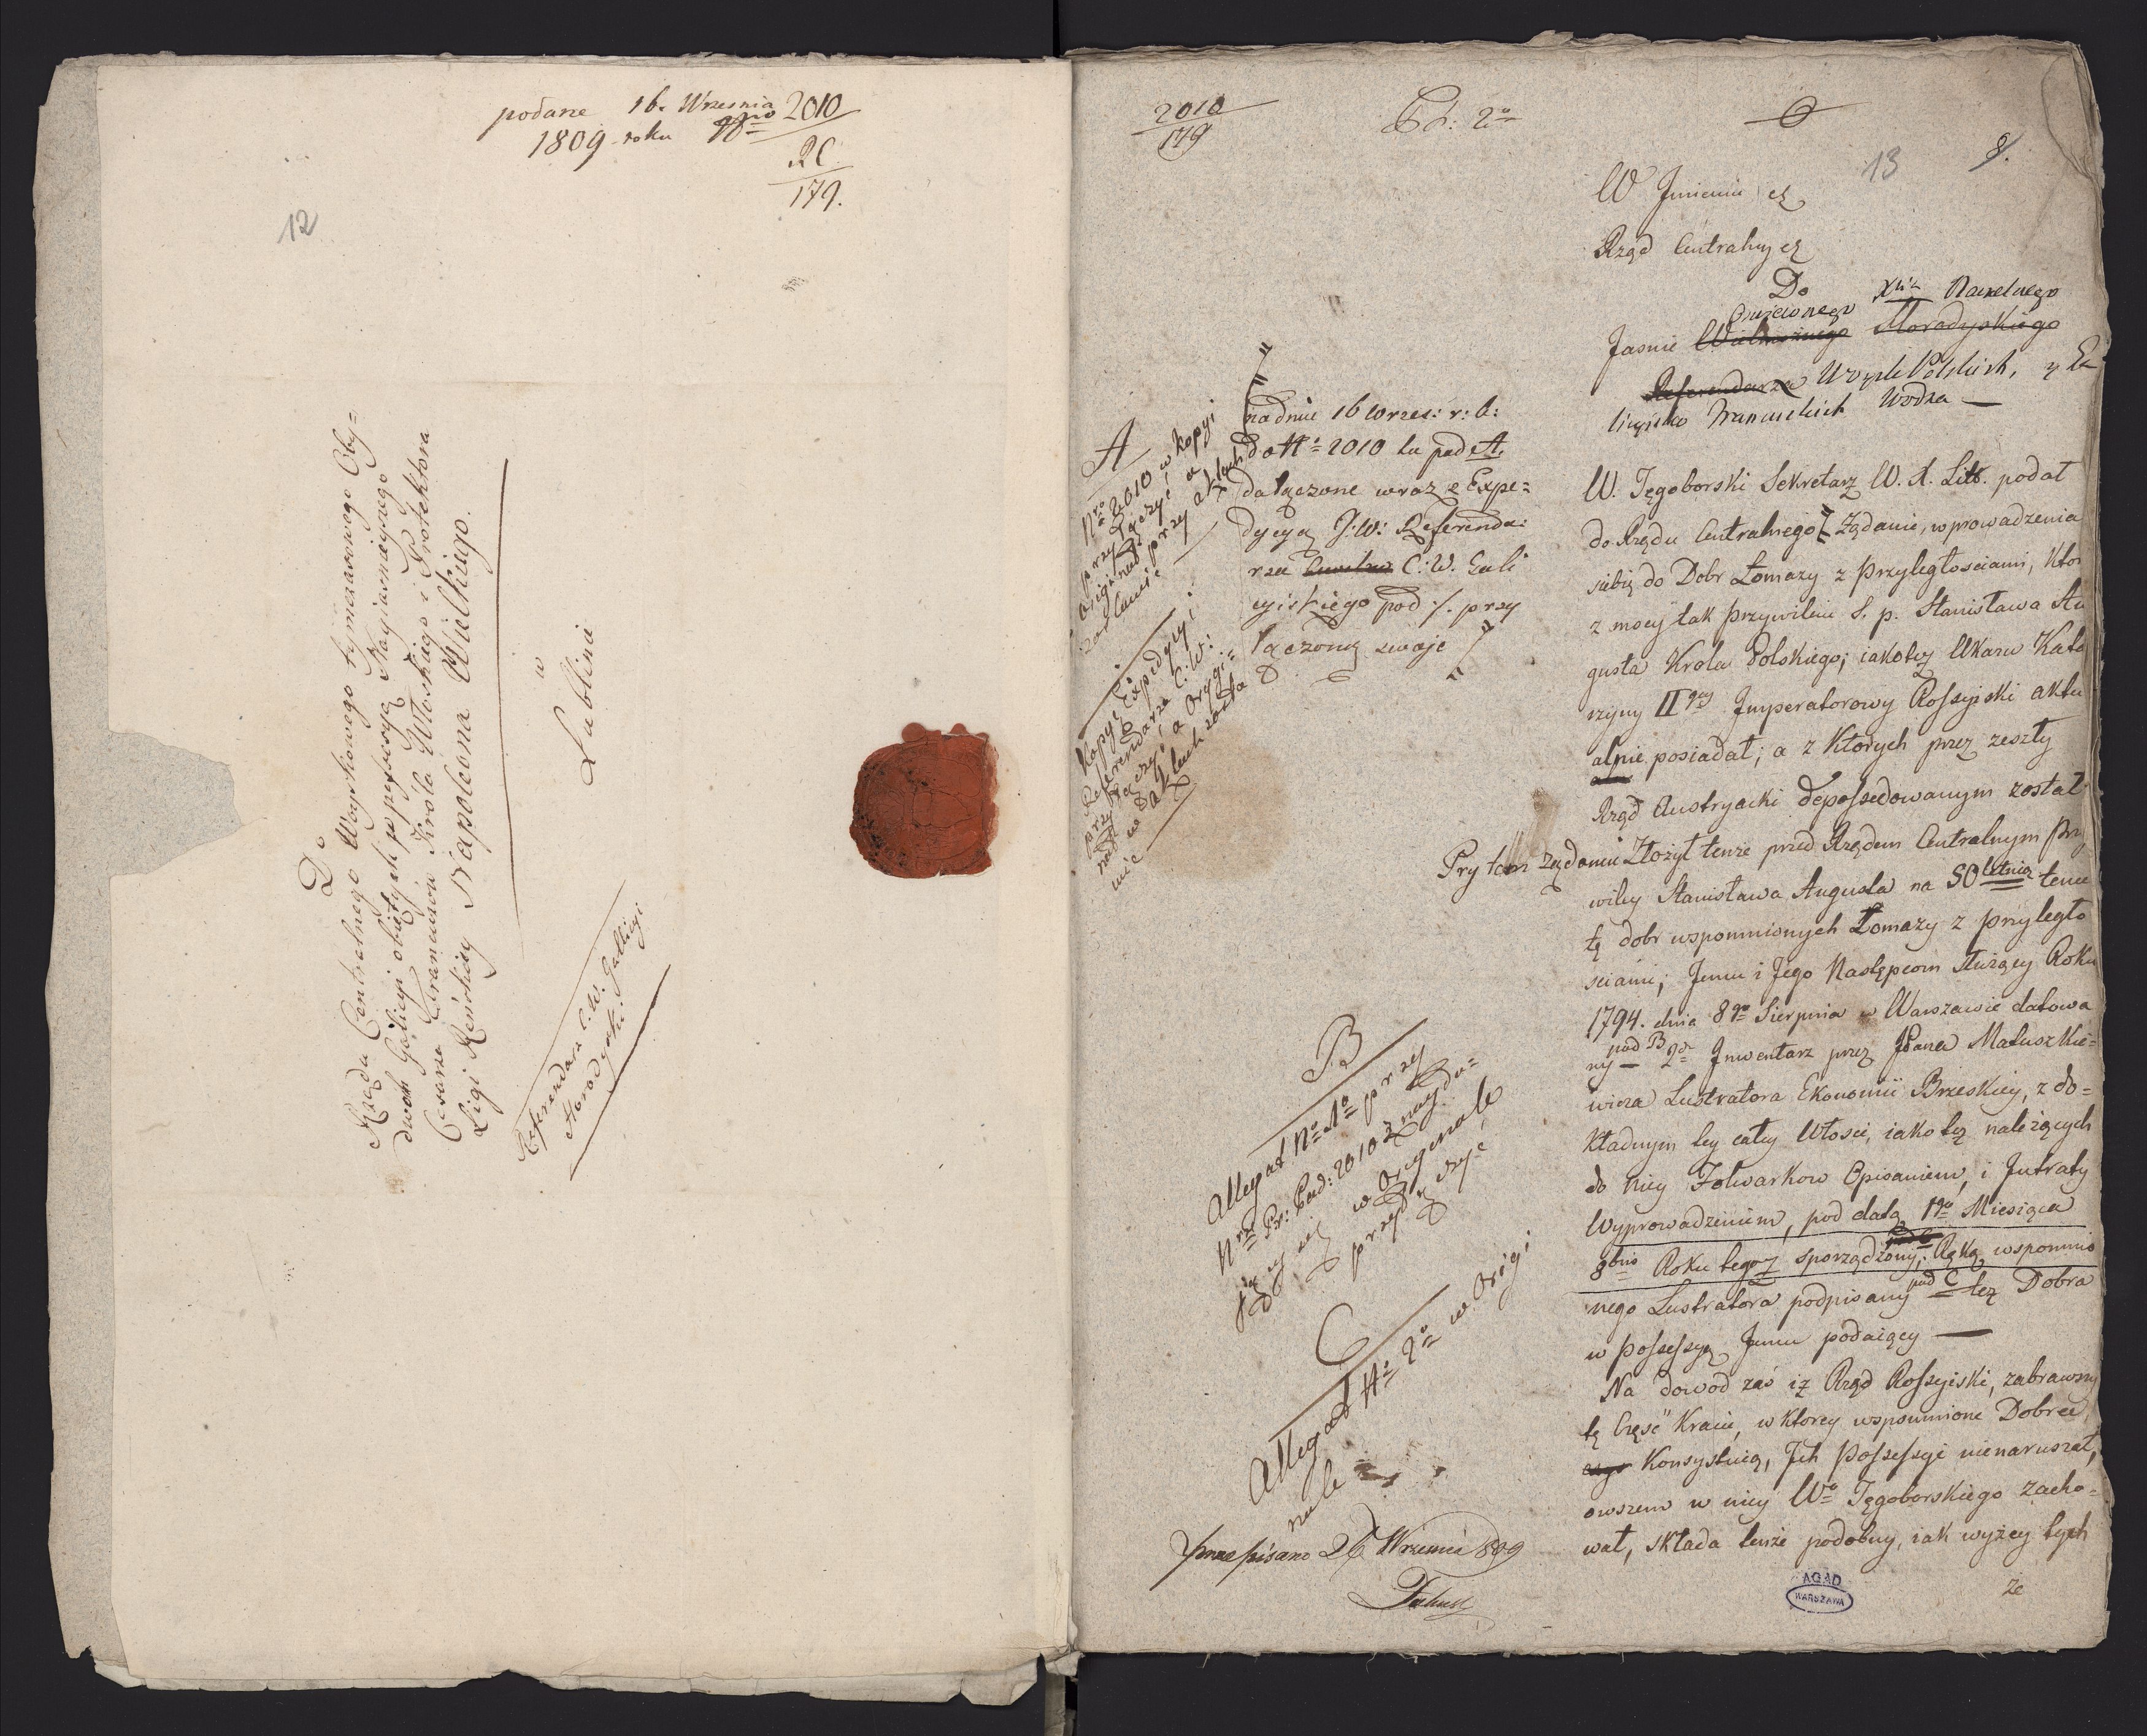 podane 16. Września
1809 roku Nro 2010
RC.
179.
12
Do
Rządu Centralnego Woyskowego tymczasowego Oby=
dwóch Galicyi objętych w possessyą Nayjaśnieyszego
Cesarza Francuzów Króla Włoskiego i Protektora
Ligi Reńskiey Napoleona Wielkiego.
w
Lublinie
Referendarz C. W. Gallicyi
Horodyski
2010
179
Ed: 2do
13
8.
W Jmieniu etc
Rząd Centralny etc
Do
Jaśnie Oświeconego Xcia Naczelnego
Wielmożnego Horodyskiego
Referendarza Woysk Polskich, y Ga
licyisko Francuzkich Wodza —
A
Nro 2010 w kopyi
przyłączyć a
originał przy aktach
zostawić
na dniu 16 Wrześ: r: b:
do No 2010 tu pod A.
dołączone wraz z Expe=
dycyą J:W: Referenda:
rza C:W. Gali
cyiskiego pod ./. przy
łączoną swoje
Kopyę Expedycyi
Referendarza C:W:
przyłączyć a Orygi=
nał w aktach zosta
wić
W. Tęgoborski Sekretarz W. X. Litt. podał
do Rządu Centralnego żądanie, wprowadzenia
siebie do Dobr Łomazy z Przyległościami, ktor
z mocy tak Przywileiu S. p. Stanisława Au
gusta Krola Polskiego; iakoteż Ukazu Kata
rzyny IIgiey Jmperatorowy Rossyiski aktu
alnie posiadał; a z Których przez zeszły
Rząd Austryacki depossedowanym został
Przy tem żądaniu Złożył tenże przed Rządem Centralnym Przy
wiley Stanisława Augusta na 50letnią tenu
tę dobr wspomnionych Łomazy z przyległo
sciami; Jemu i Jego Następcom służący Roku
1794. dnia 8go Sierpnia w Warszawie datowa
ny pod B 2do Jnwentarz przez Pana Matuszkie=
wicza Lustratora Ekonomii Brzeskiey, z do=
kładnym tey całey Włości, iako też należących
do niey Folwarkow Opisaniem, i Jntraty
Wyprowadzeniem, pod datą 1go Miesiąca
8bra Roku tegoż sporządzony; Ręką wspomnio
nego Lustratora podpisany pod C też Dobra
w Possessyą Jemu podaiący —
Na dowod zaś iż Rząd Rossyiski, zabrawszy
tę Część Kraiu, w ktorey wspomnione Dobra
Konsystuią, Jch Possessyi nienaruszał,
owszem w niey Wo Tęgoborskiego zacho=
wał, składa tenże podobny, iak wyżey tych
że
B
Allegat No 1o przy
Nrze Pr: Cad: 2010 znaydu=
jący się w Originale
przyłączyć
C
Allegat No 2o w Origi
nale
przepisano 26 Września 809
AGAD
WARSZAWA